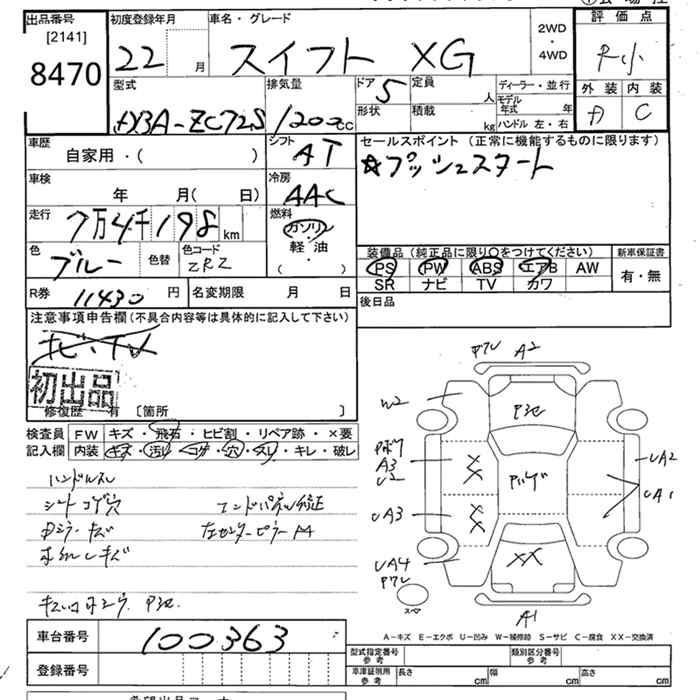 出品番号
[2141]
8470
初度登録年月
22 月
車名・グレード
スイフト XG
2WD
・
4WD
評価点
外装 内装
C
型式
DBA-ZC72S
排気量
1200 cc
ドア
5
形状
定員
人
積載
kg
ディーラー・並行
モデル年式 年
ハンドル 左・右
車歴
自家用・( )
シフト
AT
セールスポイント (正常に機能するものに限ります)
☆プッシュスタート
車検
年 月( 日)
冷房
AAC
走行
7万4千198 km
燃料
ガソリン
軽油
( ・ )
色
ブルー
色替
色コード
ZRZ
装備品 (純正品に限り〇をつけてください)
PS PW ABS エアB AW
SR ナビ TV カワ
新車保証書
有・無
R券
11430 円
名変期限 月 日
後日品
注意事項申告欄 (不具合内容等は具体的に記入して下さい)
ナビ・TV
初出品
修復歴 有 [箇所 ]
検査員
記入欄
FW キズ・飛石・ヒビ割・リペア跡・×要
内装 キズ・汚レ・コゲ・穴・スレ・キレ・破レ
ハンドルスレ
シートコゲ穴
エンドパネル修正
左センターピラーA4
A2
W2
A3
U2
UA3
UA4
UA2
UA1
A1
XX
スペア
A-キズ E-エクボ U-凹み W-補修跡 S-サビ C-腐食 XX-交換済
車台番号
100363
登録番号
型式指定番号
参考
類別区分番号
参考
車庫証明用
参考
長さ cm
幅 cm
高さ cm